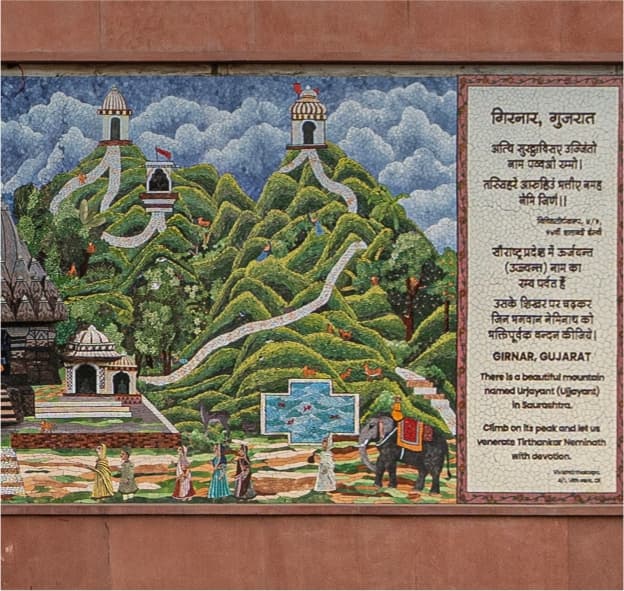 गिरनार, गुजरात
अत्थि सुरट्ठाविसए उज्जिंतो
नाम पव्वओ रम्मो।
तस्सिहरे आरुहिउं भत्तीए नमह
नेमि जिणं।।
सौराष्ट्र प्रदेश में ऊर्जयन्त
(उज्जयन्त) नाम का
रम्य पर्वत है
उसके शिखर पर चढ़कर
जिन भगवान नेमिनाथ को
भक्तिपूर्वक वन्दन कीजिये।
GIRNAR, GUJARAT
There is a beautiful mountain
named Urjayant (Ujjayant)
in Saurashtra.
Climb on its peak and let us
venerate Tirthankar Neminath
with devotion.